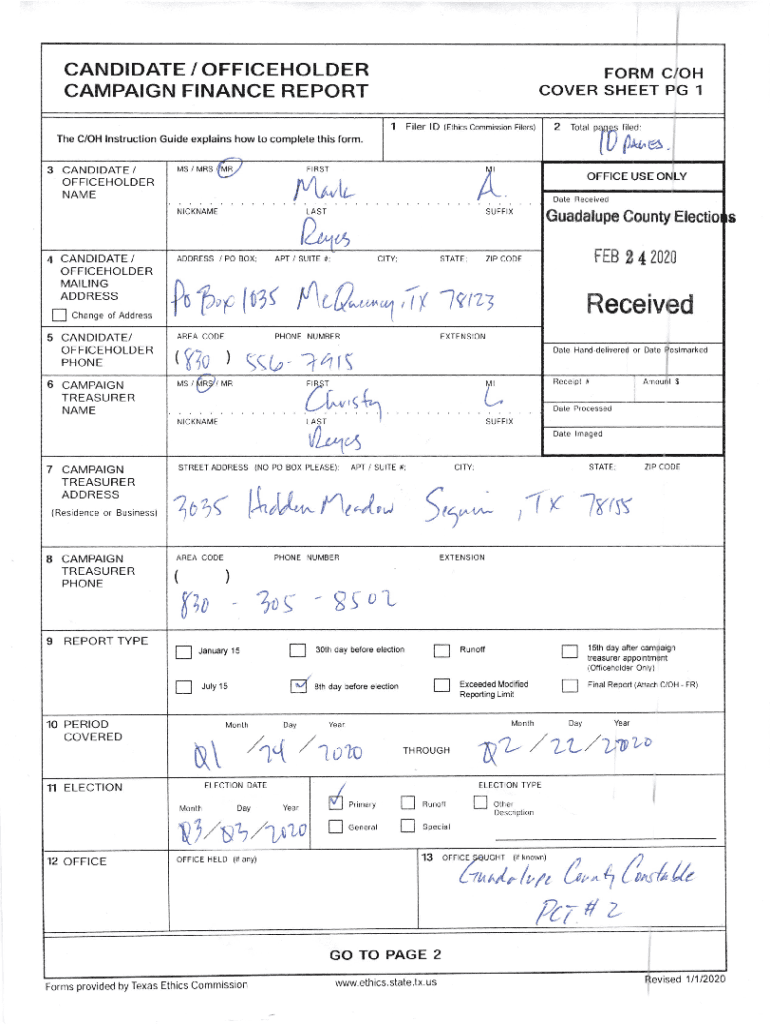 CANDIDATE / OFFICEHOLDER
CAMPAIGN FINANCE REPORT
FORM C/OH
COVER SHEET PG 1
The C/OH Instruction Guide explains how to complete this form.
1 Filer ID (Ethics Commission Filers)
2 Total pages filed:
10 PAGES.
3 CANDIDATE / OFFICEHOLDER NAME
MS / MRS / MR FIRST MI
Mark A.
NICKNAME LAST SUFFIX
Reyes
OFFICE USE ONLY
Date Received
Guadalupe County Elections
FEB 24 2020
Received
4 CANDIDATE / OFFICEHOLDER MAILING ADDRESS
Change of Address
ADDRESS / PO BOX; APT / SUITE #; CITY; STATE; ZIP CODE
Po Box 1035 McQueeney, TX 78123
5 CANDIDATE/ OFFICEHOLDER PHONE
AREA CODE PHONE NUMBER EXTENSION
(830) 556-7915
Date Hand-delivered or Date Postmarked
Receipt # Amount $
Date Processed
Date Imaged
6 CAMPAIGN TREASURER NAME
MS / MRS / MR FIRST MI
Christy L.
NICKNAME LAST SUFFIX
Reyes
7 CAMPAIGN TREASURER ADDRESS
(Residence or Business)
STREET ADDRESS (NO PO BOX PLEASE); APT / SUITE #; CITY; STATE; ZIP CODE
3035 Hidden Meadow Seguin, TX 78155
8 CAMPAIGN TREASURER PHONE
AREA CODE PHONE NUMBER EXTENSION
( )
830 - 305 - 8502
9 REPORT TYPE
January 15 30th day before election Runoff 15th day after campaign treasurer appointment (Officeholder Only)
July 15 8th day before election Exceeded Modified Reporting Limit Final Report (Attach C/OH - FR)
10 PERIOD COVERED
Month Day Year Month Day Year
01 / 24 / 2020 THROUGH 02 / 22 / 2020
11 ELECTION
ELECTION DATE
Month Day Year
03/03/2020
ELECTION TYPE
Primary Runoff Other Description
General Special
12 OFFICE
OFFICE HELD (if any)
13 OFFICE SOUGHT (if known)
Guadalupe County Constable
PCT # 2
GO TO PAGE 2
Forms provided by Texas Ethics Commission www.ethics.state.tx.us Revised 1/1/2020